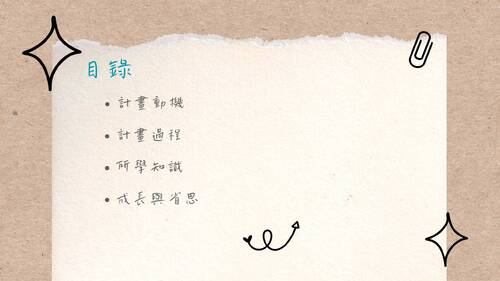 目錄
計畫動機
計畫過程
所學知識
成長與省思